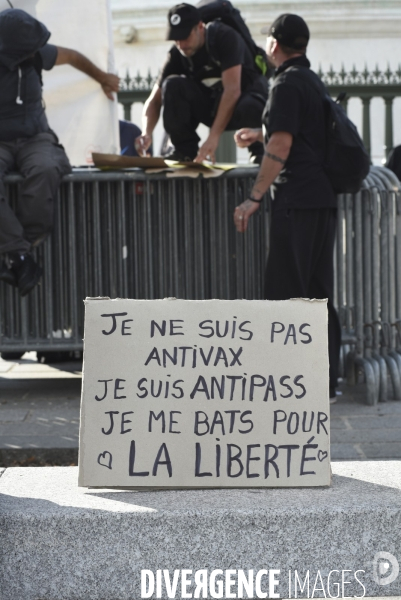 JE NE SUIS PAS
ANTIVAX
JE SUIS ANTIPASS
JE ME BATS POUR
LA LIBERTÉ
DIVERGENCE IMAGES